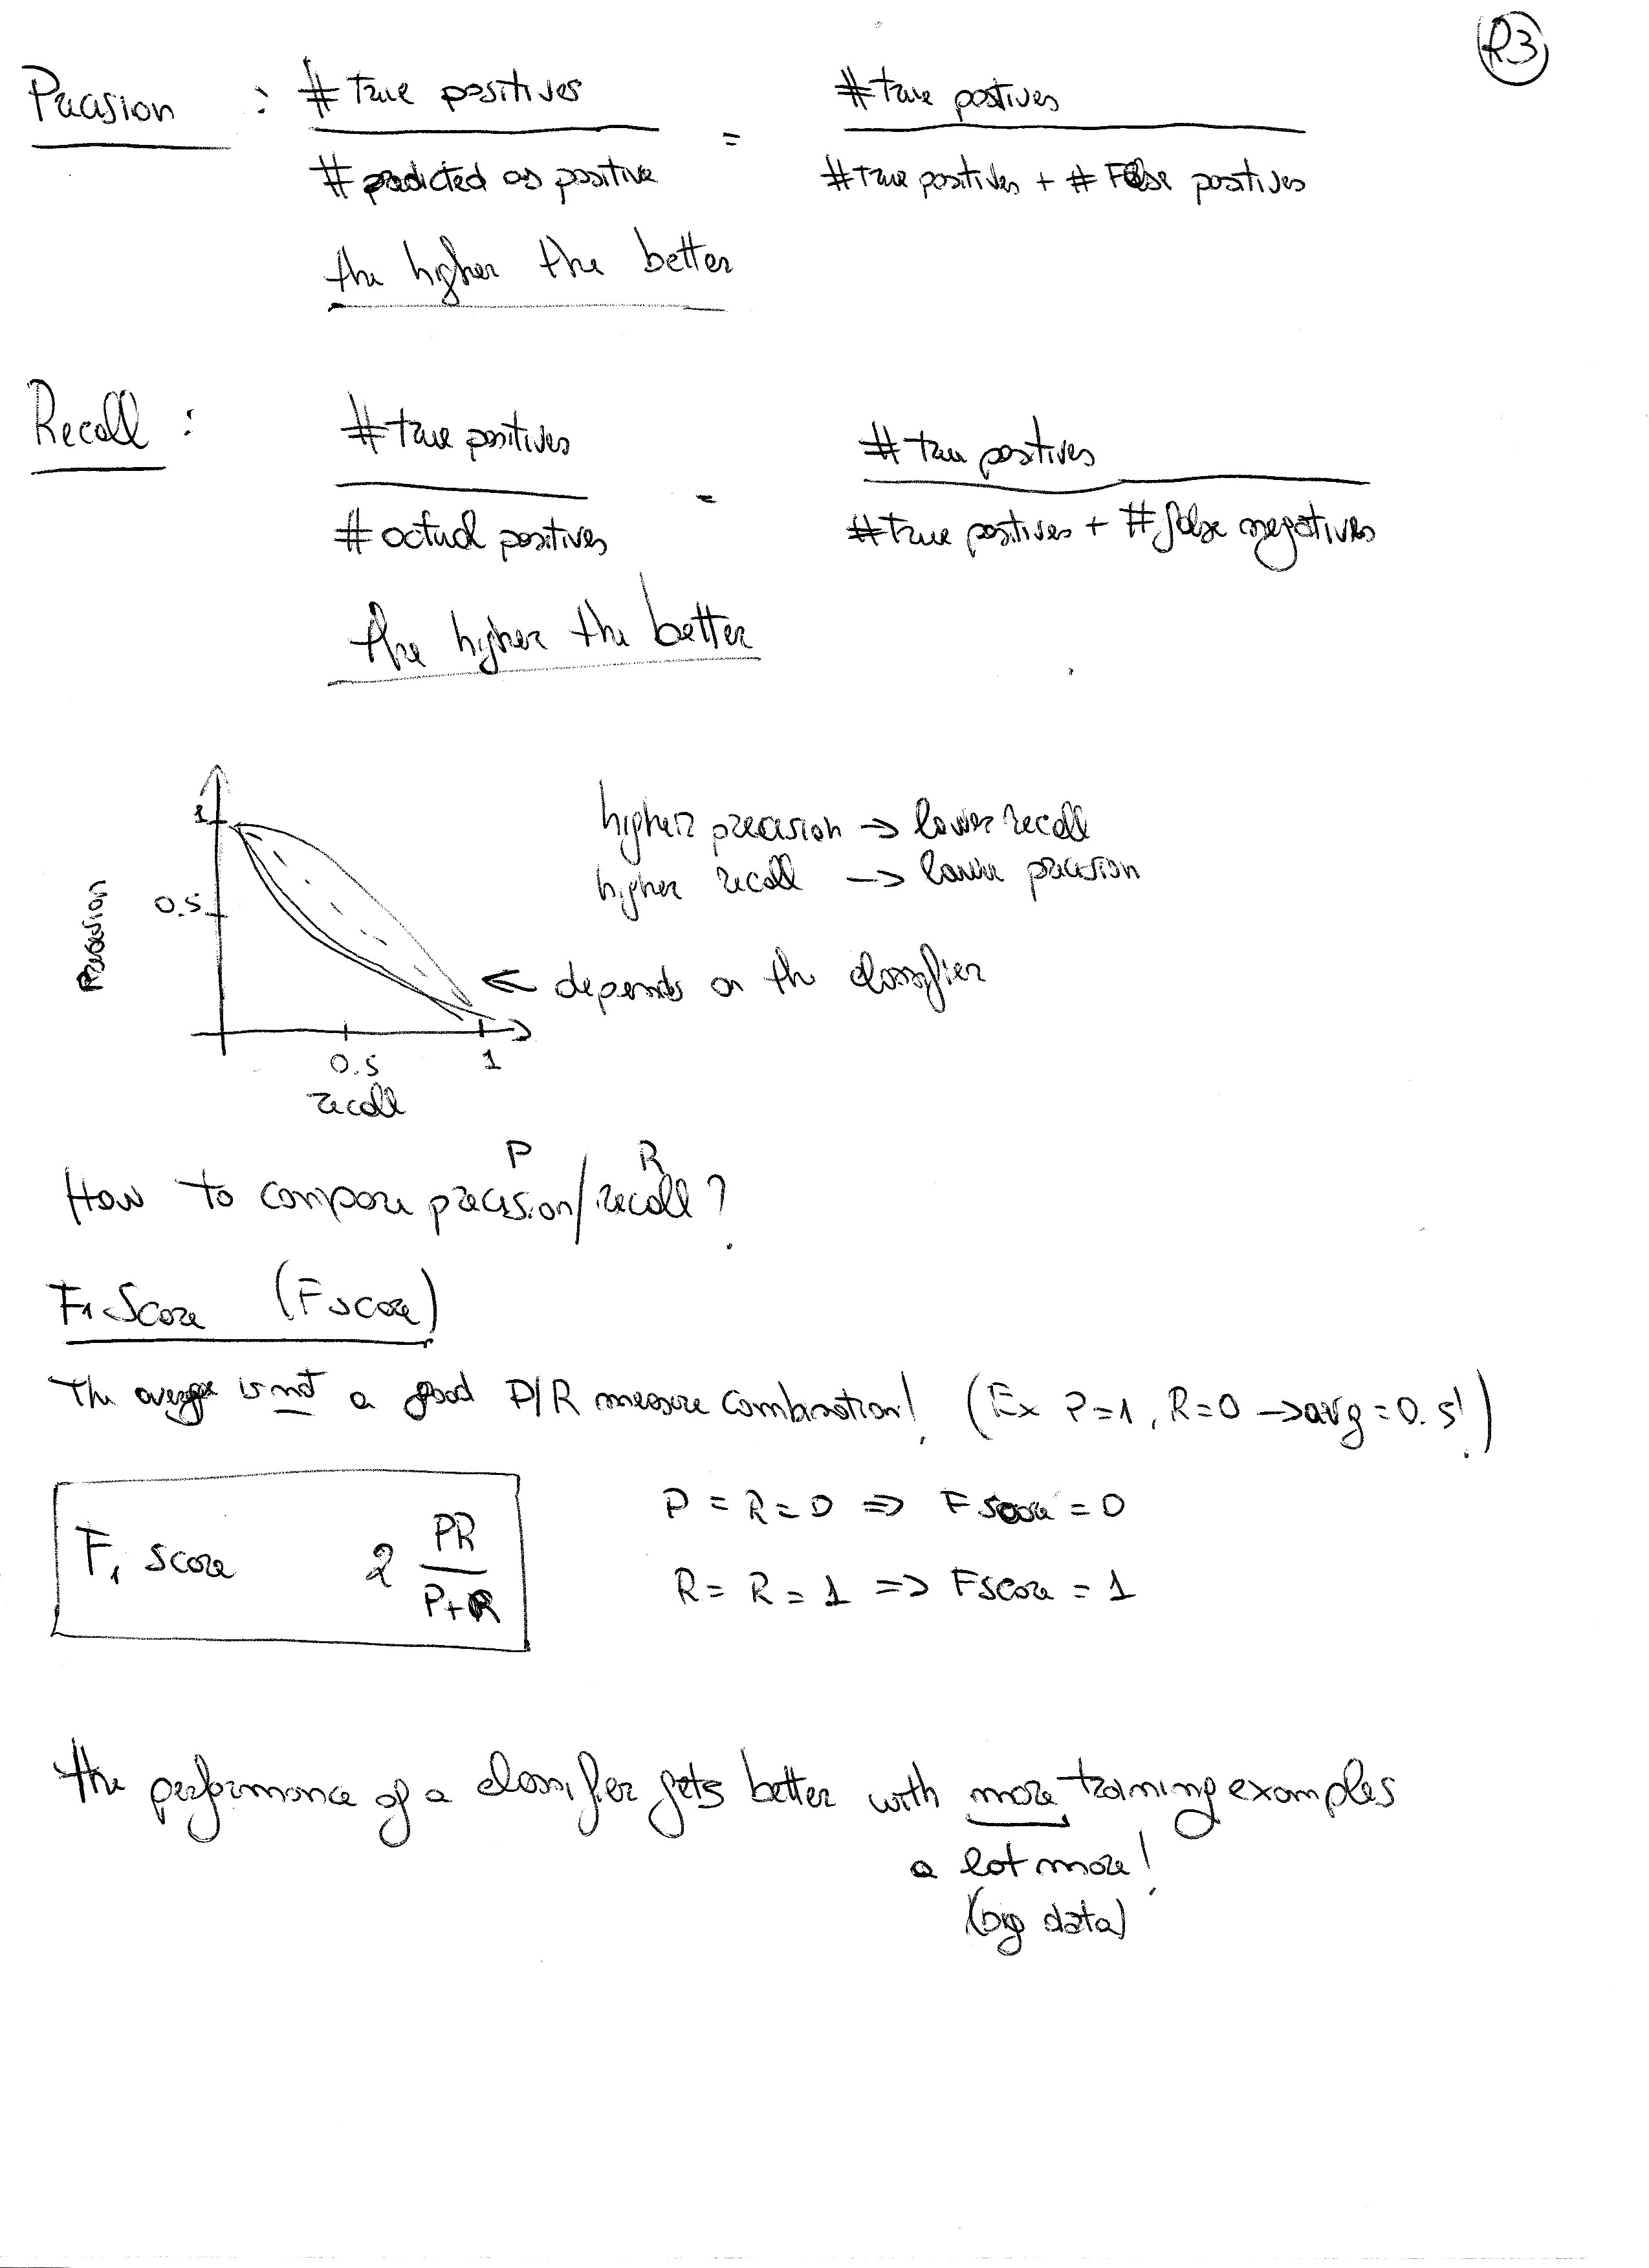 R3
Precision : # true positives / # predicted as positive = # true postives / # true positives + # False positives
the higher the better
Recall : # true positives / # actual positives = # true postives / # true positives + # false negatives
the higher the better
1
0.5
Precision
0.5 1
recall
higher precision → lower recall
higher recall → lower precision
← depends on the classifier
P R
How to compare precision/recall?
F1 Score (F score)
The average is not a good P/R measure combination! (Ex P=1, R=0 → avg = 0.5!)
F1 score 2 PR / P+R
P = R = 0 ⇒ F score = 0
R = R = 1 ⇒ F score = 1
the performance of a classifier gets better with more training examples
a lot more!
(big data)